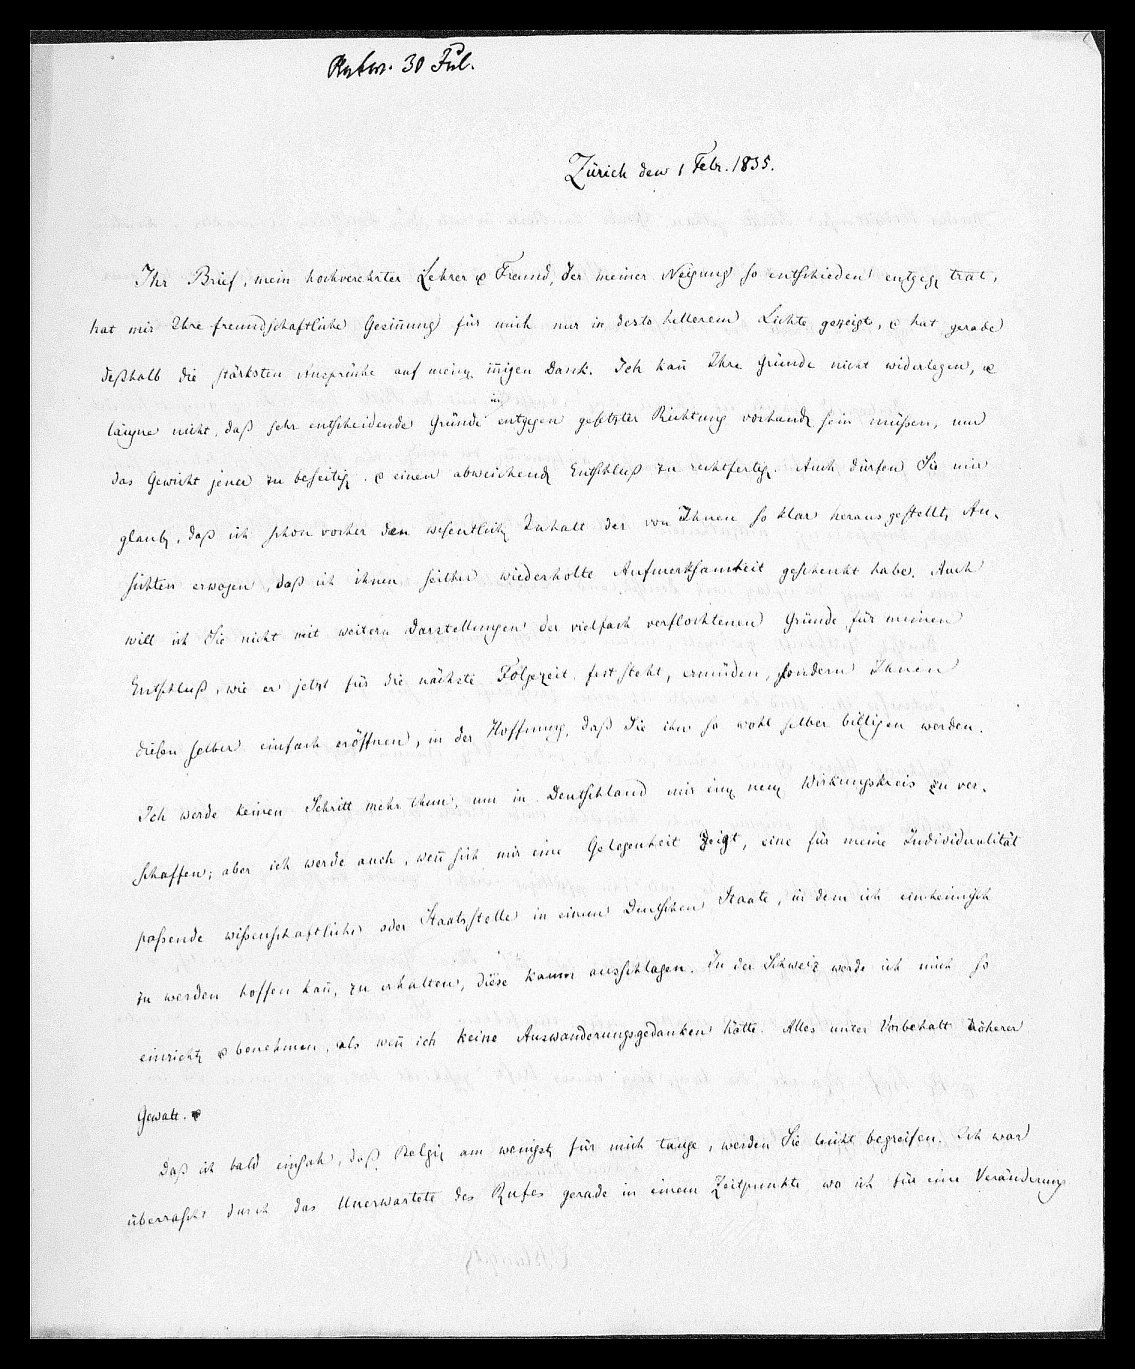 30 Jul.
Zürich den 1 Febr. 1835.
Ihr Brief, mein hochverehrter Lehrer & Freund, der meiner Neigung so entschieden entgegen trat,
hat mir Ihre freundschaftliche Gesinnung für mich nur in desto hellerem Lichte gezeigt, & hat gerade
deßhalb die stärksten Ansprüche auf meinen innigen Dank. Ich kann Ihre Gründe nicht widerlegen, &
läugne nicht, daß sehr entscheidende Gründe in entgegen gesetzter Richtung vorhanden sein müßen, um
das Gewicht jener zu beseitigen & einen abweichenden Entschluß zu rechtfertigen. Auch dürfen Sie mir
glauben, daß ich schon vorher den wesentlichen Inhalt der von Ihnen so klar heraus gestellten An-
sichten erwogen, daß ich ihnen seither wiederholte Aufmerksamkeit geschenkt habe. Auch
will ich Sie nicht mit weitern Darstellungen der vielfach verflochtenen Gründe für meinen
Entschluß, wie er jetzt für die nächste Folgezeit fest steht, ermüden, sondern Ihnen
diesen selber einfach eröffnen, in der Hoffnung, daß Sie ihn so wohl selber billigen werden.
Ich werde keinen Schritt mehr thun, um in Deutschland mir einen neuen Wirkungskreis zu ver-
schaffen; aber ich werde auch, wenn sich mir eine Gelegenheit zeigt, eine für meine Individualität
paßende wißenschaftliche oder Staatsstelle in einem Deutschen Staate, in dem ich einheimisch
zu werden hoffen kann, zu erhalten, diese kaum ausschlagen. In der Schweiz werde ich mich so
einrichten & benehmen, als wenn ich keine Auswanderungsgedanken hätte. Alles unter Vorbehalt höherer
Gewalt.
Daß ich bald einsah, daß Belgien am wenigsten für mich tauge, werden Sie leicht begreifen. Ich war
überrascht durch das Unerwartete des Rufes gerade in einem Zeitpunkte wo ich für eine Veränderung